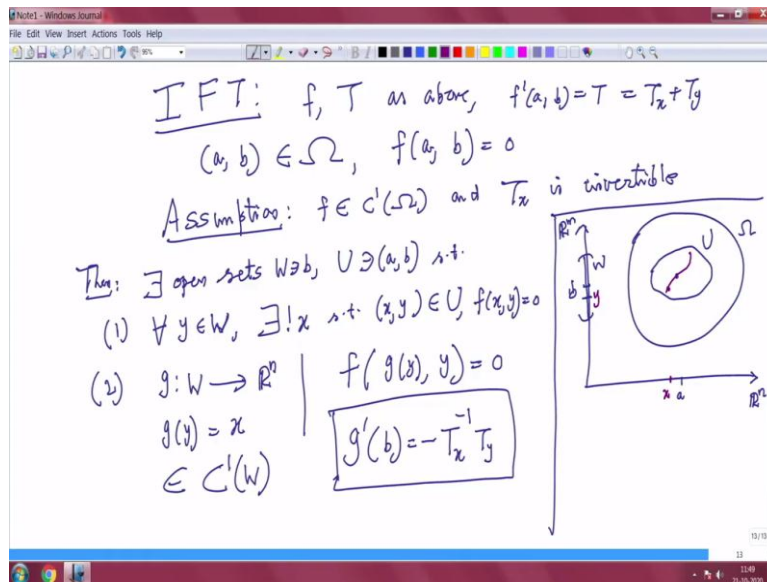 Note1 - Windows Journal
File Edit View Insert Actions Tools Help
IFT: f, T as above, f'(a, b) = T = Tₓ + Tᵧ
(a, b) ∈ Ω, f(a, b) = 0
Assumption: f ∈ C'(Ω) and Tₓ is invertible
Then: ∃ open sets W∋b, U∋(a,b) s.t.
(1) ∀ y∈W, ∃!x s.t. (x,y)∈U, f(x,y)=0
(2) g: W → ℝⁿ
g(y) = x
∈ C'(W)
f(g(y), y) = 0
g'(b) = -Tₓ⁻¹ Tᵧ
W
U
Ω
b
y
x a
ℝⁿ
13/13
13
11:49
21-10-2020